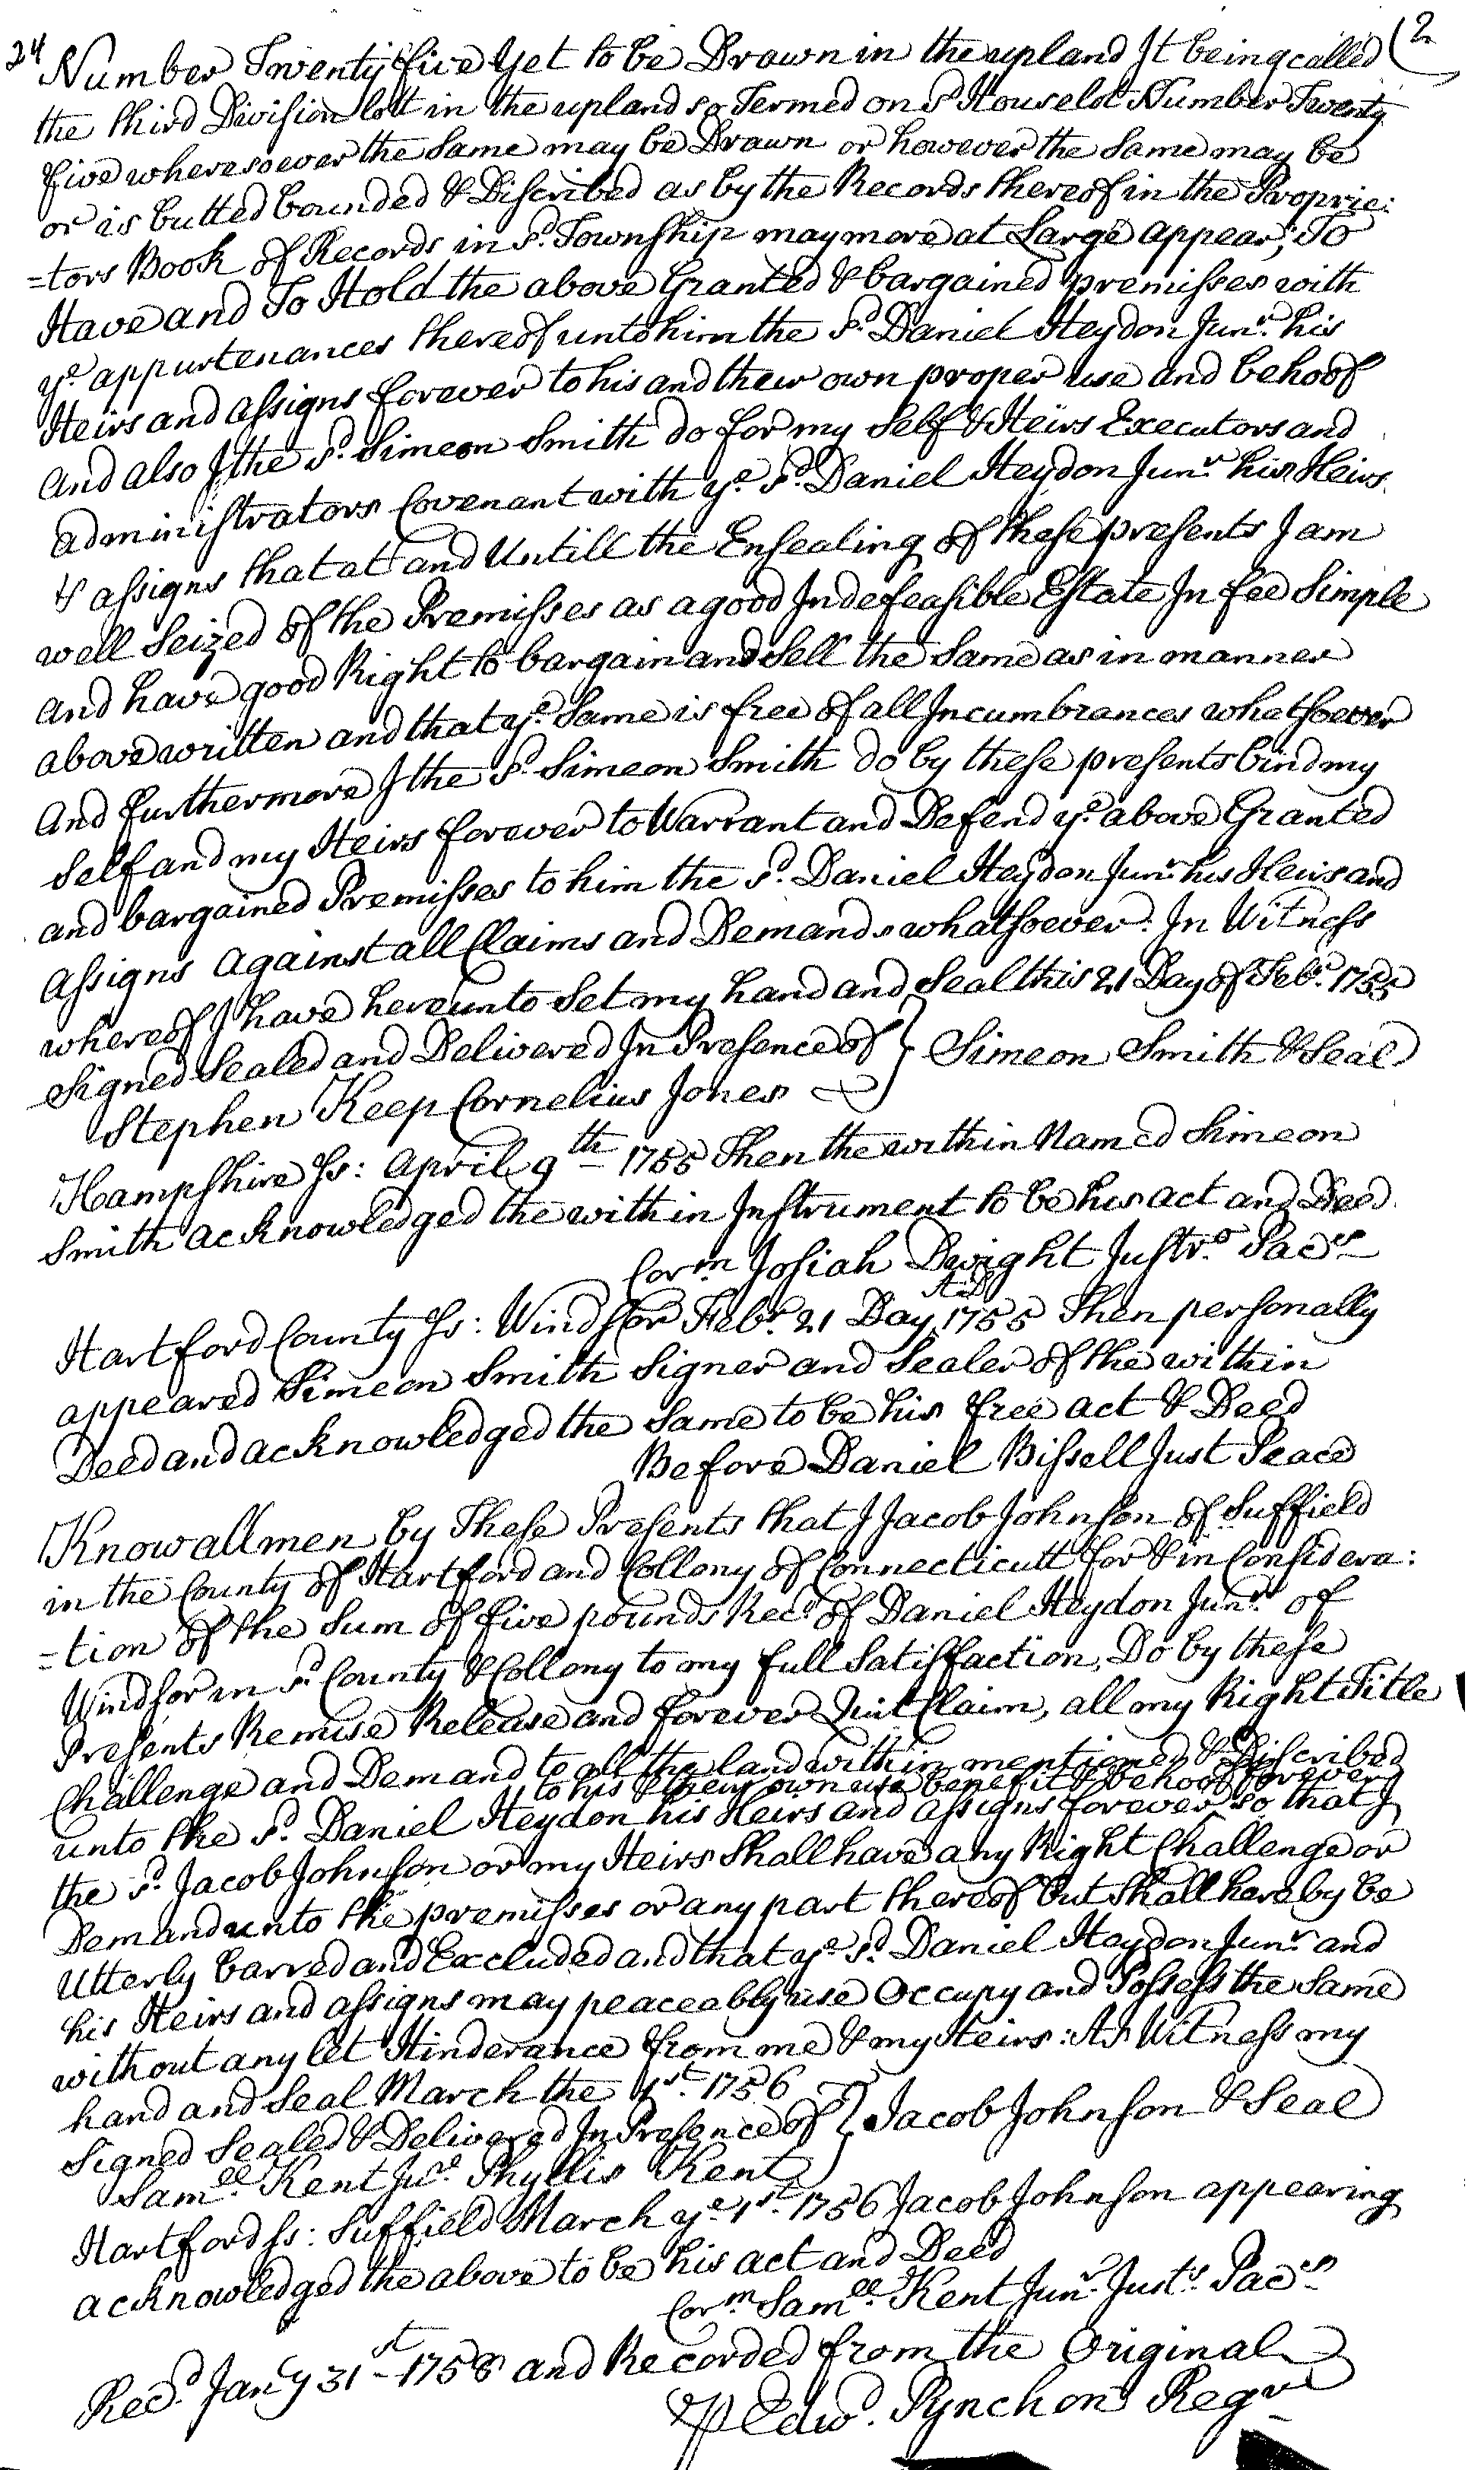 24 Number Twenty five Yet to be Drawn in the upland It being called (2
the third Division lott in the upland so Termed on sd. Houselot Number Twenty
five wheresoever the Same may be Drawn or however the Same may be
or is butted bounded & Discribed as by the Records thereof in the Proprie:
=tors Book of Records in sd. Township may more at Large appear; To
Have and To Hold the above Granted & bargained premisses with
ye. appurtenances thereof unto him the sd. Daniel Heydon Junr. his
Heirs and assigns forever to his and their own proper use and behoof
and also I the sd. Simeon Smith do for my Self & Heirs Executors and
administrators Covenant with ye. sd. Daniel Heydon Junr. his Heirs
& assigns that at and Untill the Ensealing of these presents I am
well Seized of the Premisses as a good Indefeasible Estate In fee Simple
and have good Right to bargain and Sell the Same as in manner
above written and that ye. Same is free of all Incumbrances whatsoever
And furthermore I the sd. Simeon Smith do by these presents bind my
Self and my Heirs forever to Warrant and Defend ye. above Granted
and bargained Premisses to him the sd. Daniel Heydon Junr. his Heirs and
assigns against all Claims and Demands whatsoever. In Witness
whereof I have hereunto Set my hand and Seal this 21 Day of Febr. 1755
Signed Sealed and Delivered In Presence of } Simeon Smith & Seal
Stephen Keep Cornelius Jones
Hampshire Ss: April 9th 1755 Then the within Named Simeon
Smith acknowledged the within Instrument to be his act and Deed.
Corm. Josiah Dwight Justre. Pacs
Hartford County Ss: Windsor Febr. 21 Day AD 1755 Then personally
appeared Simeon Smith Signer and Sealer of the within
Deed and acknowledged the Same to be his free act & Deed
Before Daniel Bissell Just Peace
Know all men by These Presents that I Jacob Johnson of Suffield
in the County of Hartford and Collony of Connecticutt for & in Considera:
=tion of the Sum of five pounds Recd. of Daniel Heydon Junr. of
Windsor in sd. County & Collony to my full Satisfaction, Do by these
Presents Remise Release and forever Quit Claim, all my Right Title
Challenge and Demand to all the land within mentioned & Discribed
to his & their own use benefit & behoof forever
unto the sd. Daniel Heydon his Heirs and assigns forever so that I
the sd. Jacob Johnson or my Heirs Shall have any Right Challenge or
Demand unto the premisses or any part thereof but Shall hereby be
Utterly barred and Excluded and that ye. sd. Daniel Heydon Junr. and
his Heirs and assigns may peaceably use Occupy and Possess the Same
without any let Hinderance from me & my Heirs: As Witness my
hand and Seal March the 1st. 1756
Signed Sealed & Delivered In Presence of } Jacob Johnson & Seal
Samll. Kent Jur. Phyllis Kent
Hartford Ss: Suffield March ye. 1st. 1756 Jacob Johnson appearing
acknowledged the above to be his act and Deed
Corm. Samll. Kent Junr. Justs. Pacs.
Recd. Jany 31st 1758 and Recorded from the Original
P Edwd. Pynchon Regr